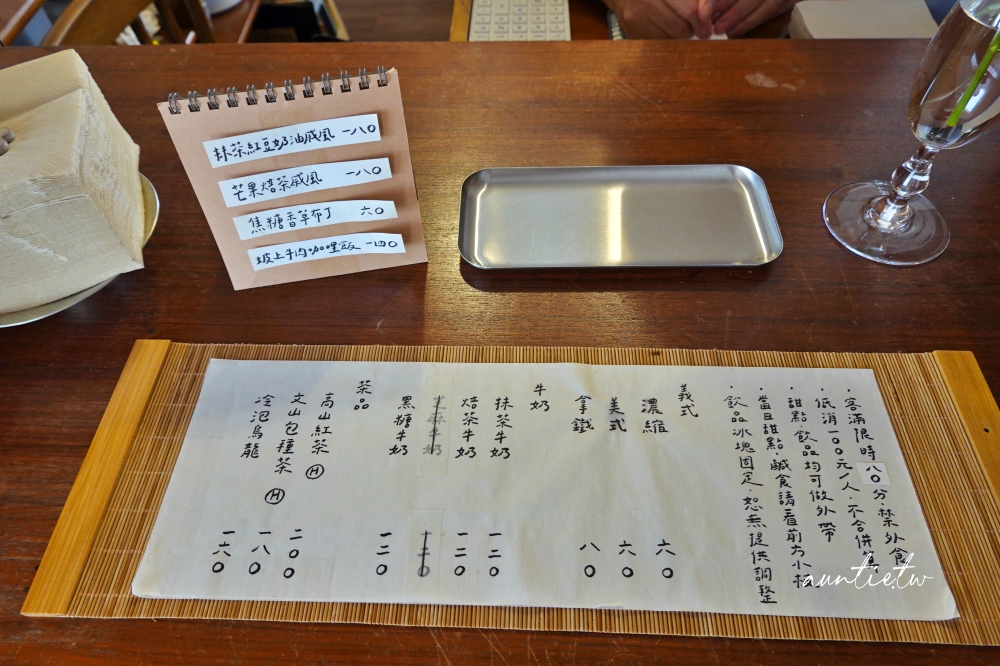 抹茶紅豆奶油戚風 一八〇
芒果焙茶戚風 一八〇
焦糖香草布丁 六〇
坡上牛肉咖哩飯 一四〇
·客滿限時八〇分·禁外食
低消一〇〇元/人·不合併算
·甜點·飲品均可做外帶
·當日甜點·鹹食請看前方小板
·飲品冰塊固定·恕無提供調整
義式
濃縮 六〇
美式 六〇
拿鐵 八〇
牛奶
抹茶牛奶 一二〇
焙茶牛奶 一二〇
芝麻牛奶 一二〇
黑糖牛奶 一二〇
茶品
高山紅茶 Ⓗ 二〇〇
文山包種茶 Ⓗ 一八〇
冷泡烏龍 一六〇
auntie.tw